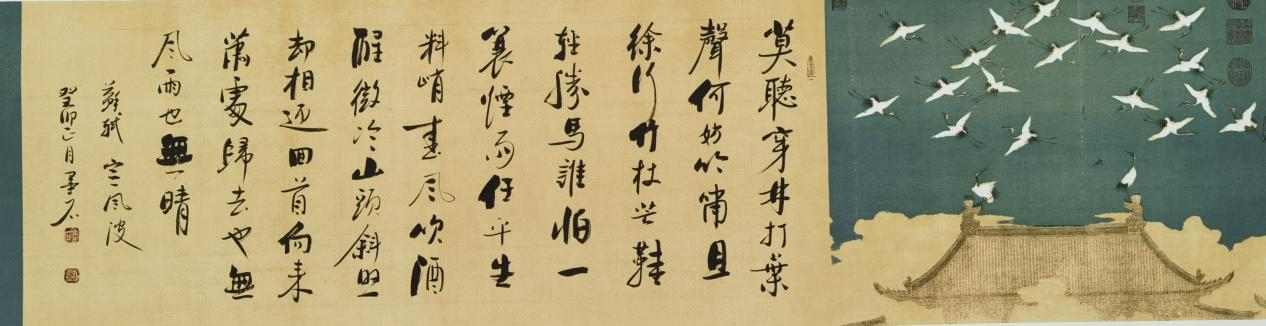 莫聽穿林打葉
聲何妨吟嘯且
徐行竹杖芒鞋
輕勝馬誰怕一
蓑煙雨任平生
料峭春風吹酒
醒微冷山頭斜照
却相迎回首向来
蕭處歸去也無
風雨也無晴
蘇軾 定風波
癸卯正月墨石